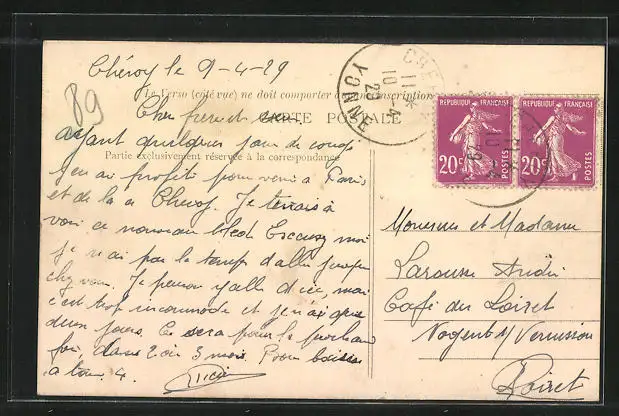 Chéroy le 9-4-29
89
Le Verso (côté vue) ne doit comporter inscription
CARTE POSTALE
Cher frère et
ayant quelques jour de congé
Partie exclusivement réservée à la correspondance
j'en ai profité pour venir à Paris
et de la a Cheroy. Je tenais à
voir ce nouveau bled Excusez moi
je n'ai pas le temps d'aller jusque
chez vous. Je pensais y aller d'ici, mais
c'est trop incommode et je n'ai que
deux jours. Ce sera pour la prochaine
fois, dans 2 ou 3 mois. Bons baisers
a tous 4.
Lucien
CHE
YONNE
11 *
10 - 4
29
REPUBLIQUE FRANÇAISE
20c
POSTES
REPUBLIQUE FRANÇAISE
20c
POSTES
Monsieur et Madame
Larousse
Café du Loiret
Nogent s/ Vernisson
Loiret